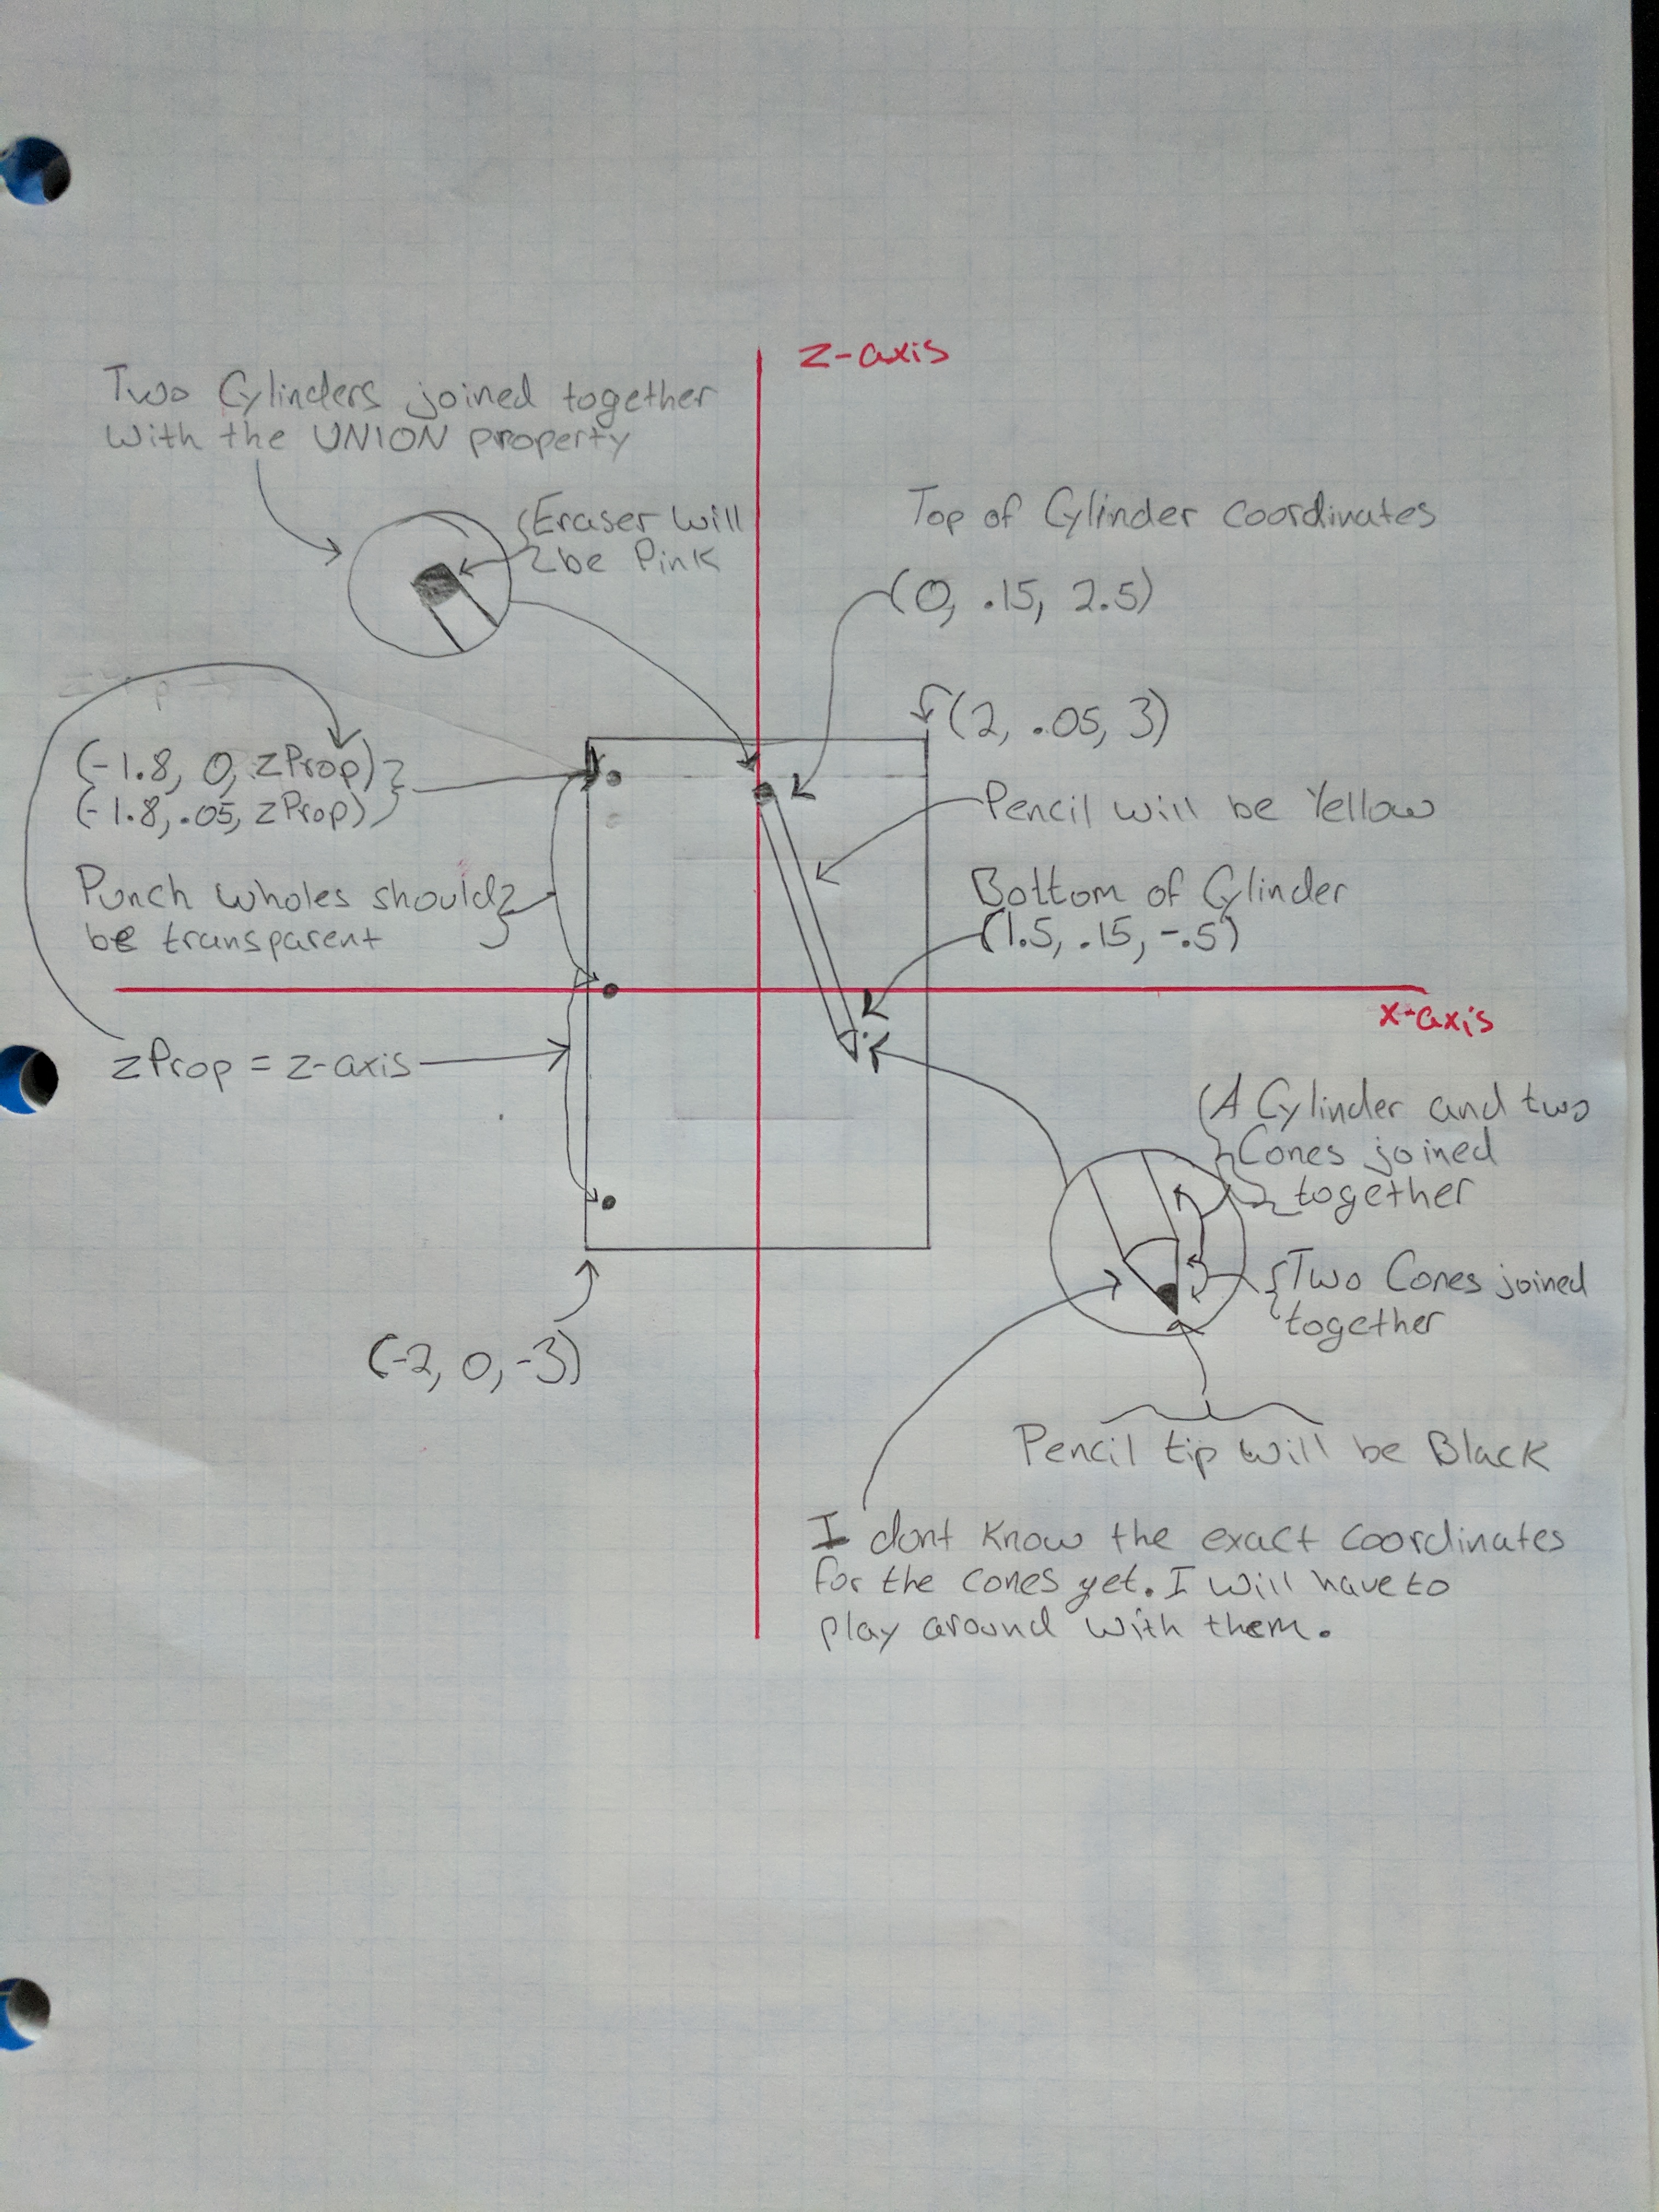 z-axis
Two Cylinders joined together
With the UNION property
Eraser will
be Pink
Top of Cylinder Coordinates
(0, .15, 2.5)
(2, .05, 3)
(-1.8, 0, zProp)
(-1.8, .05, zProp)
Pencil will be Yellow
Punch wholes should
be transparent
Bottom of Cylinder
(1.5, .15, -.5)
x-axis
zProp = z-axis
A Cylinder and two
Cones joined
together
Two Cones joined
together
(-2, 0, -3)
Pencil tip will be Black
I dont know the exact coordinates
for the cones yet. I will have to
play around with them.